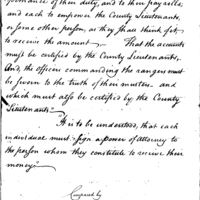 formance of their duty, and to their payrolls;
and each to empower the County Lieutenants,
or some other person, as they shall think fit,
to receive the amount. That the accounts
must be certified by the County Lieutenants.
And, the officer commanding the rangers must
be sworn to the truth of their musters. and
which must also be certified by the County
Lieutenants."
"It is to be understood, that each
individual must sign a power of attorney to
the person whom they constitute to receive their
money."
Compared by